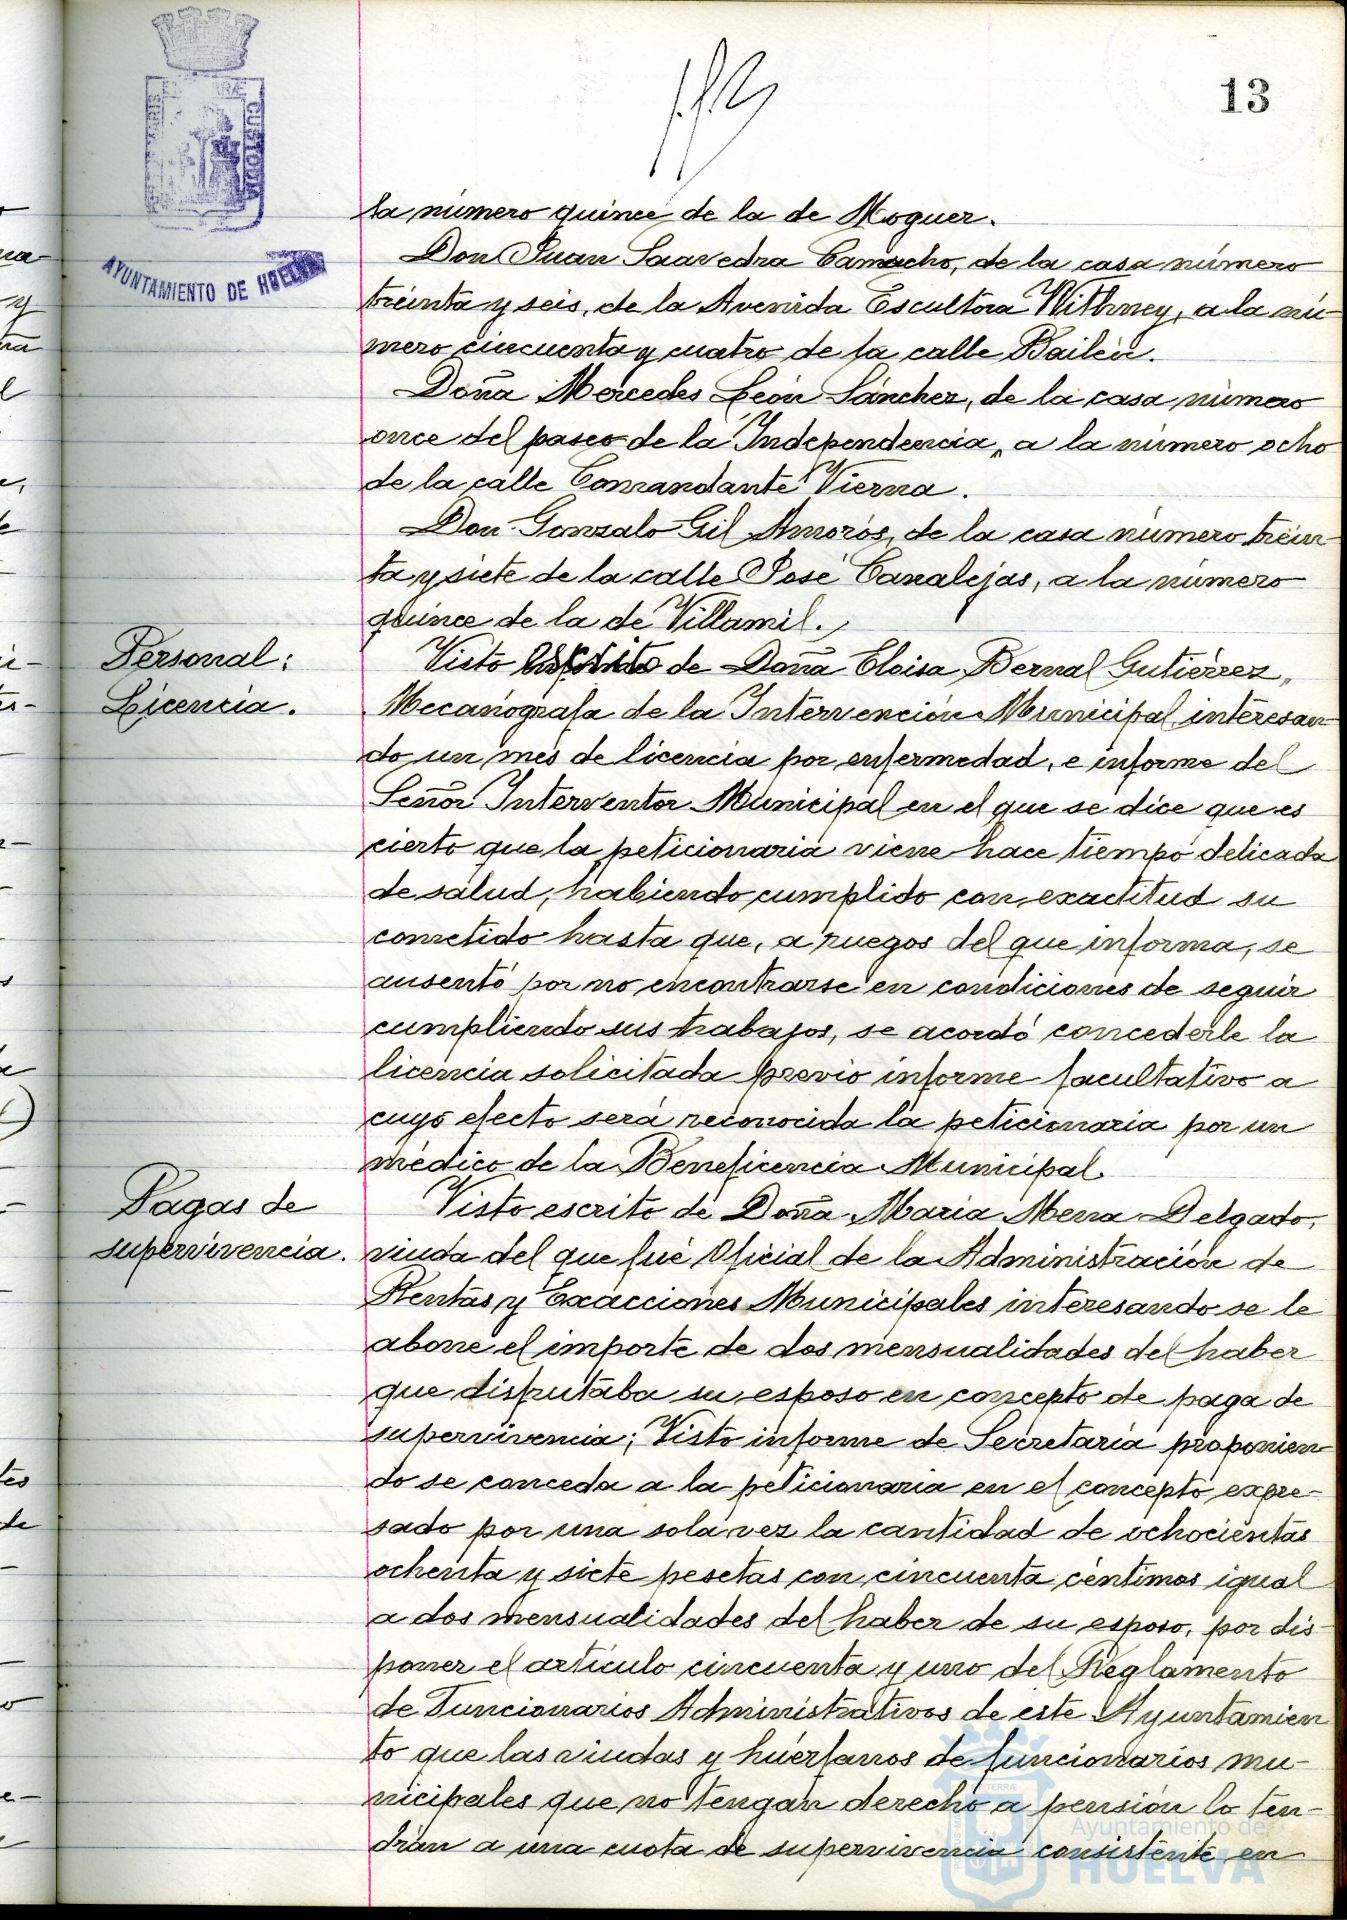 13
PORTUS MARIS ET TERRÆ CUSTODIA
AYUNTAMIENTO DE HUELVA
sa número quince de la de Moguer.
Don Juan Saavedra Camacho, de la casa número
treinta y seis, de la Avenida Escultora Withney, a la nú-
mero cincuenta y cuatro de la calle Bailén.
Doña Mercedes León Sánchez, de la casa número
once del paseo de la Independencia, a la número ocho
de la calle Comandante Vierna.
Don Gonzalo Gil Amorós, de la casa número trein-
ta y siete de la calle José Canalejas, a la número
quince de la de Villamil.
Personal:
Licencia.
Visto escrito de Doña Eloisa Bernal Gutiérrez,
Mecanógrafa de la Intervención Municipal interesan-
do un mes de licencia por enfermedad, e informe del
Señor Interventor Municipal en el que se dice que es
cierto que la peticionaria viene hace tiempo delicada
de salud, habiendo cumplido con exactitud su
cometido hasta que, a ruegos del que informa, se
ausentó por no encontrarse en condiciones de seguir
cumpliendo sus trabajos, se acordó concederle la
licencia solicitada previo informe facultativo a
cuyo efecto será reconocida la peticionaria por un
médico de la Beneficencia Municipal.
Pagas de
supervivencia.
Visto escrito de Doña Maria Mena Delgado,
viuda del que fué Oficial de la Administración de
Rentas y Exacciones Municipales interesando se le
abone el importe de dos mensualidades del haber
que disfrutaba su esposo en concepto de paga de
supervivencia; Visto informe de Secretaría proponien-
do se conceda a la peticionaria en el concepto expre-
sado por una sola vez la cantidad de ochocientas
ochenta y siete pesetas con cincuenta céntimos igual
a dos mensualidades del haber de su esposo, por dis-
poner el artículo cincuenta y uno del Reglamento
de Funcionarios Administrativos de este Ayuntamien-
to que las viudas y huérfanos de funcionarios mu-
nicipales que no tengan derecho a pensión lo ten-
drán a una cuota de supervivencia consistente en
Ayuntamiento de
HUELVA